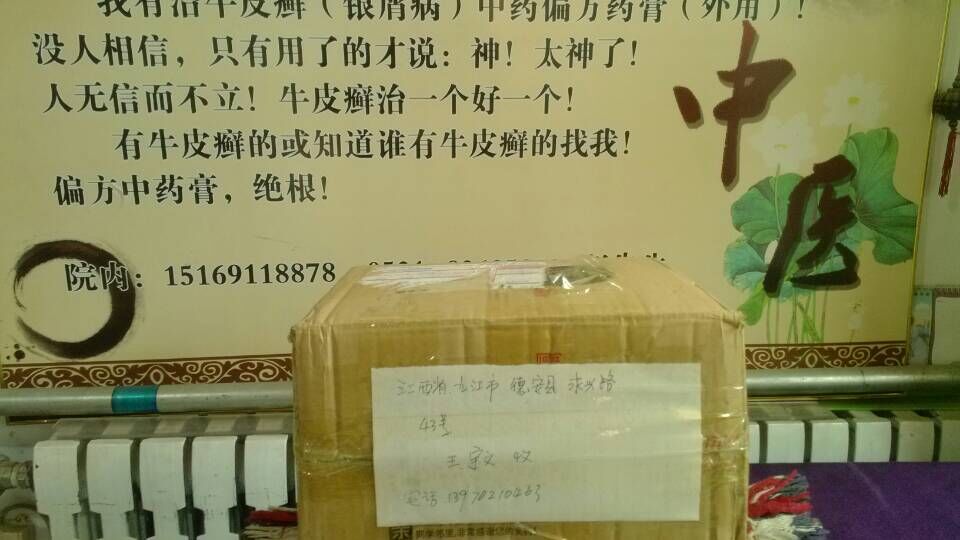 我有治牛皮癣（银屑病）中药偏方药膏（外用）！
没人相信，只有用了的才说：神！太神了！
人无信而不立！牛皮癣治一个好一个！
有牛皮癣的或知道谁有牛皮癣的找我！
偏方中药膏，绝根！
院内：15169118878
中医
江西省九江市德安县
43号
王 收
电话 13970210463